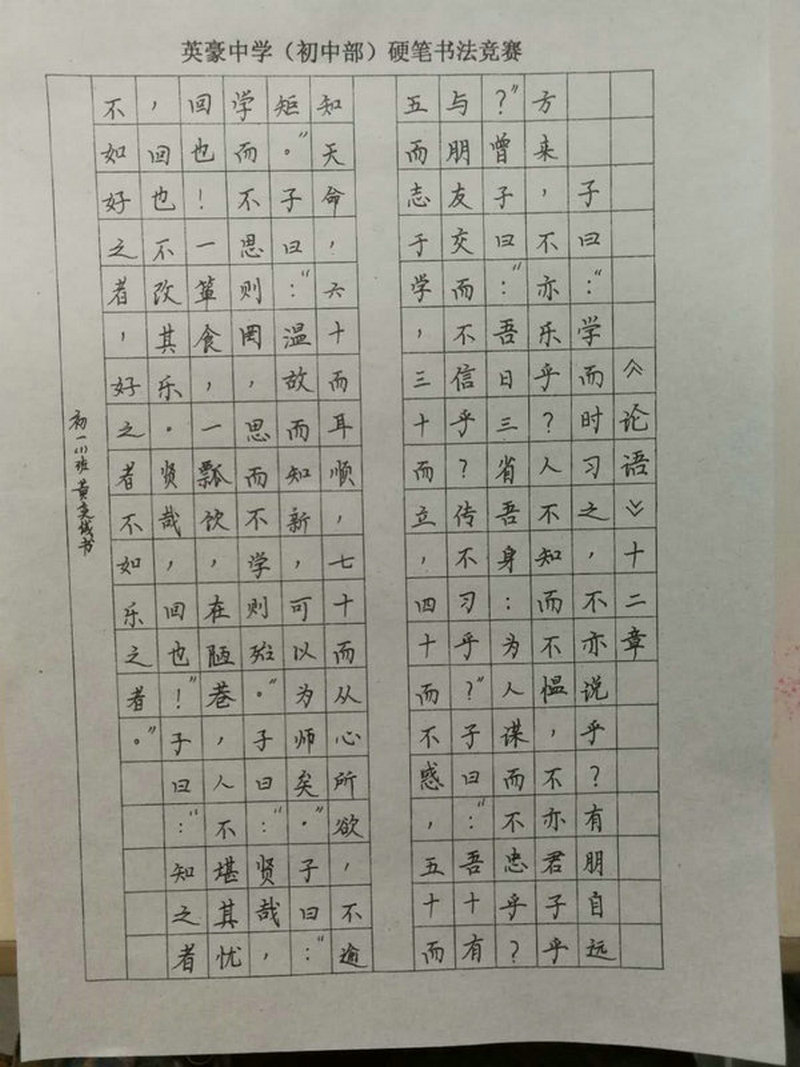 英豪中学（初中部）硬笔书法竞赛
《论语》十二章
子曰：“学而时习之，不亦说乎？有朋自远
方来，不亦乐乎？人不知而不愠，不亦君子乎
？”曾子曰：“吾日三省吾身：为人谋而不忠乎？
与朋友交而不信乎？传不习乎？”子曰：“吾十有
五而志于学，三十而立，四十而不惑，五十而
知天命，六十而耳顺，七十而从心所欲，不逾
矩。”子曰：“温故而知新，可以为师矣。”子曰：“
学而不思则罔，思而不学则殆。”子曰：“贤哉，
回也！一箪食，一瓢饮，在陋巷，人不堪其忧
，回也不改其乐。贤哉，回也！”子曰：“知之者
不如好之者，好之者不如乐之者。”
初一(1)班 黄书